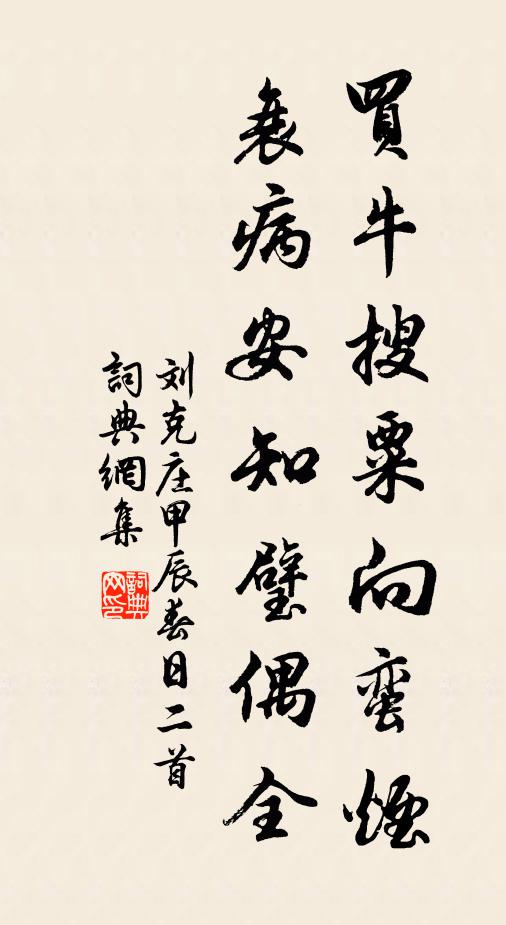 買牛搜粟向蛮煙
衰病安知璧偶全
刘克庄甲辰春日二首
詞典網集
詞典网印